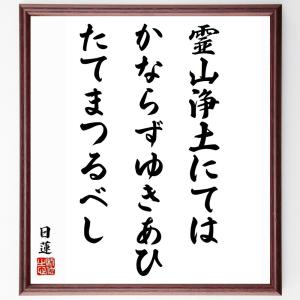 霊山浄土にては
かならずゆきあひ
たてまつるべし
日蓮